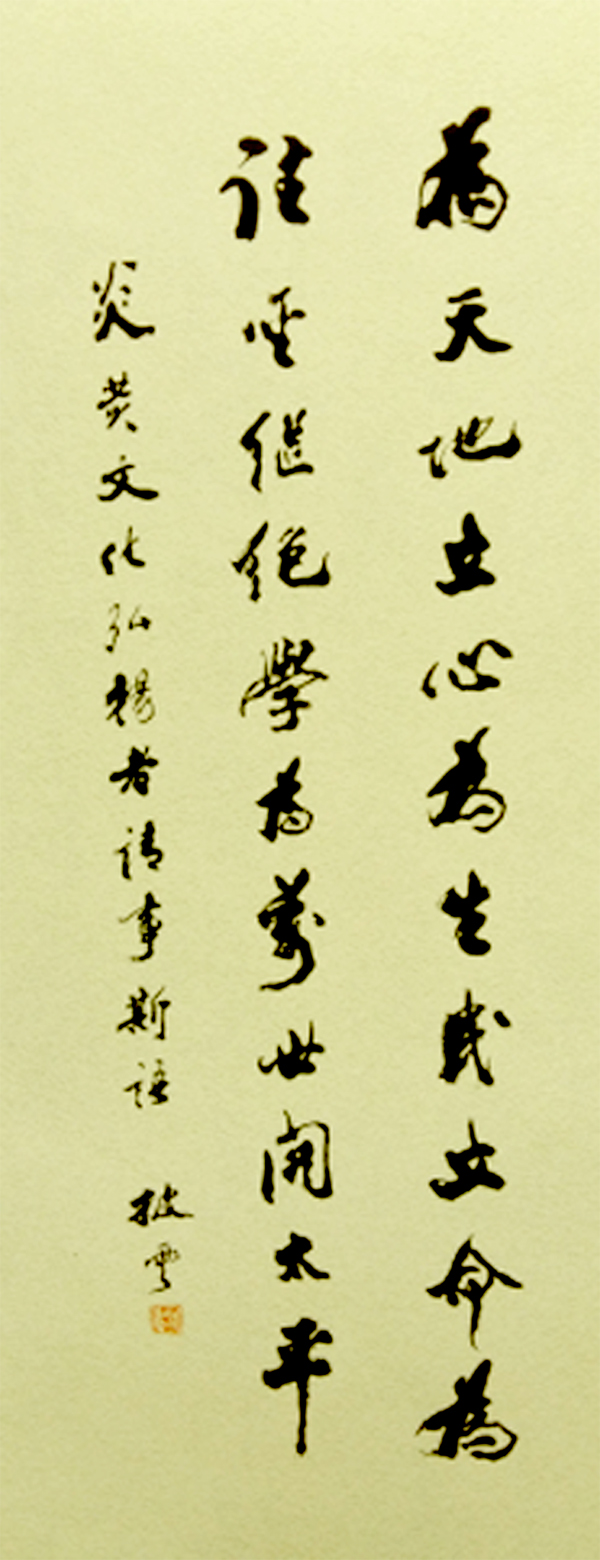 為天地立心為生民立命為
往聖继絕學為萬世開太平
炎黄文化弘揚者請事斯語 披雲